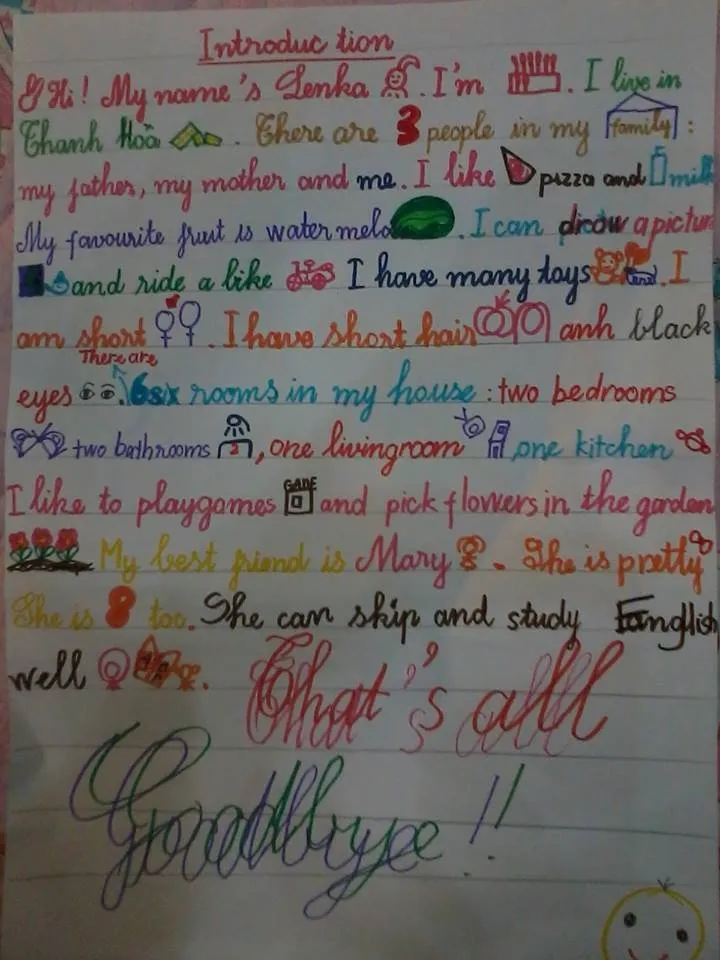 Introduction
Hi! My name's Lenka . I'm . I live in
Thanh Hoà . There are 3 people in my family :
my father, my mother and me. I like pizza and milk
My favourite fruit is water melo . I can draw a pictur
and ride a bike I have many toys . I
am short . I have short hair anh black
There are
eyes . 6 six rooms in my house : two bedrooms
two bathrooms , one livingroom , one kitchen
I like to play games GAME and pick flowers in the garden
My best friend is Mary . She is pretty
She is 8 too. She can skip and study English
well .
That's all
Goodbye !!